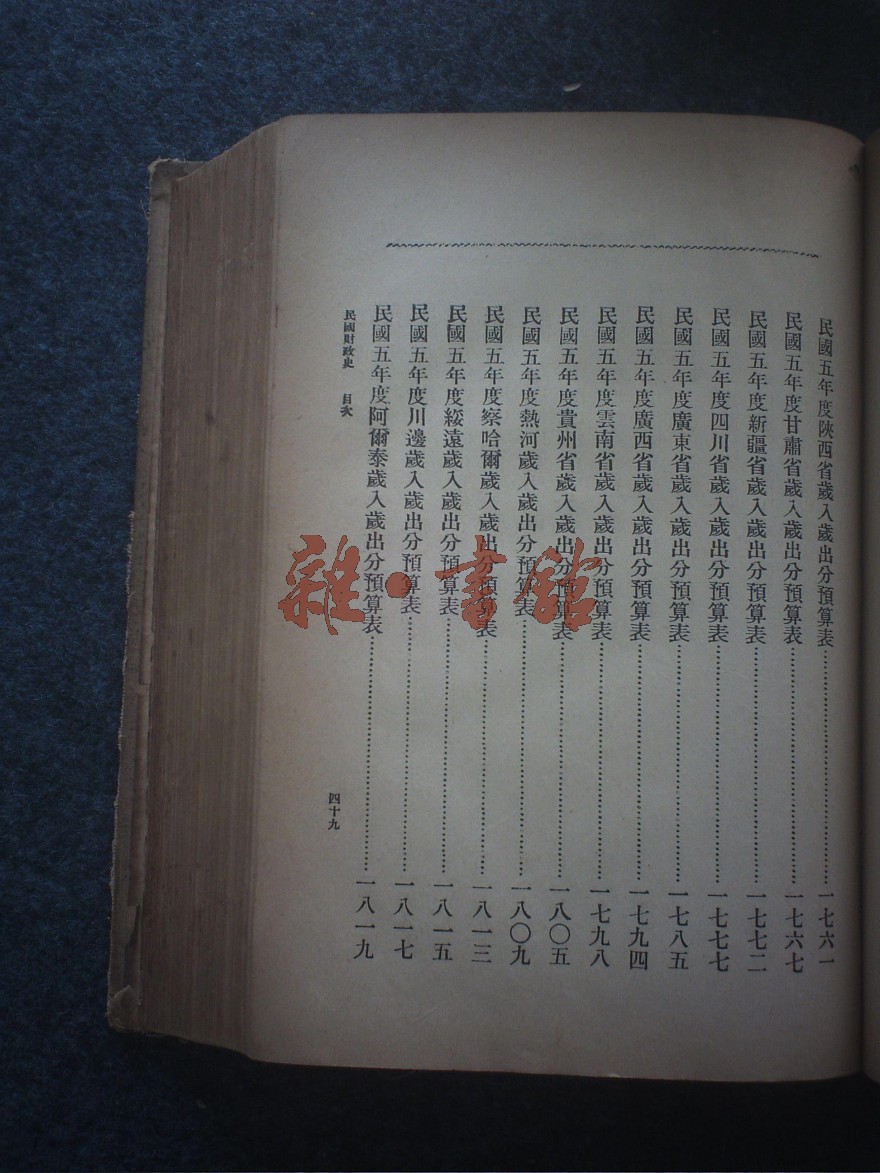 民國五年度陝西省歲入歲出分預算表……一七六一
民國五年度甘肅省歲入歲出分預算表……一七六七
民國五年度新疆省歲入歲出分預算表……一七七二
民國五年度四川省歲入歲出分預算表……一七七七
民國五年度廣東省歲入歲出分預算表……一七八五
民國五年度廣西省歲入歲出分預算表……一七九四
民國五年度雲南省歲入歲出分預算表……一七九八
民國五年度貴州省歲入歲出分預算表……一八〇五
民國五年度熱河歲入歲出分預算表……一八〇九
民國五年度察哈爾歲入歲出分預算表……一八一三
民國五年度綏遠歲入歲出分預算表……一八一五
民國五年度川邊歲入歲出分預算表……一八一七
民國五年度阿爾泰歲入歲出分預算表……一八一九
民國財政史 目次 四十九
雜·書館